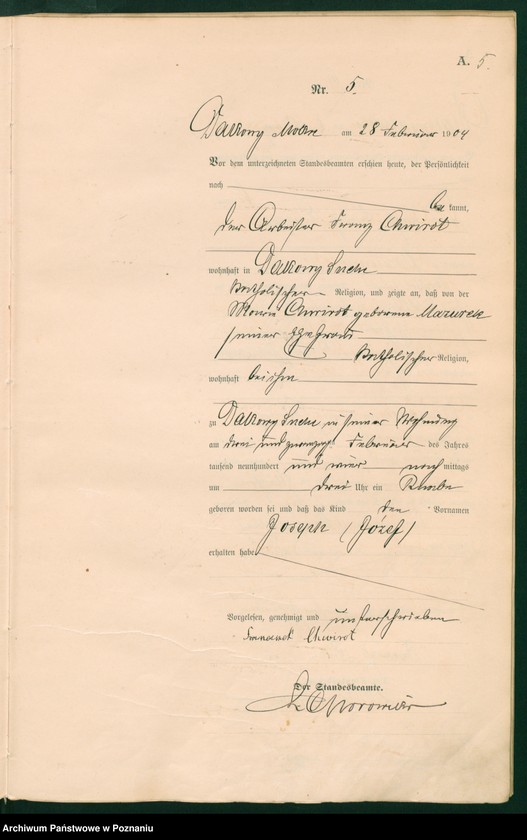 A. 5.
Nr. 5.
Dakowy Mokre am 28 Februar 1904
Vor dem unterzeichneten Standesbeamten erschien heute, der Persönlichkeit
nach
be kannt,
der Arbeiter Franz Chwirot
wohnhaft in Dakowy Suche
katholischer Religion, und zeigte an, daß von der
Chwirot geborene Mazurek
seiner Ehefrau
katholischer Religion,
wohnhaft bei ihm
zu Dakowy Suche in seiner Wohnung
am drei und zwanzig Februar des Jahres
tausend neunhundert und vier nach mittags
um drei Uhr ein Knabe
geboren worden sei und daß das Kind den Vornamen
Joseph (Józef)
erhalten habe
Vorgelesen, genehmigt und unterschrieben
Chwirot
Der Standesbeamte.
Archiwum Państwowe w Poznaniu